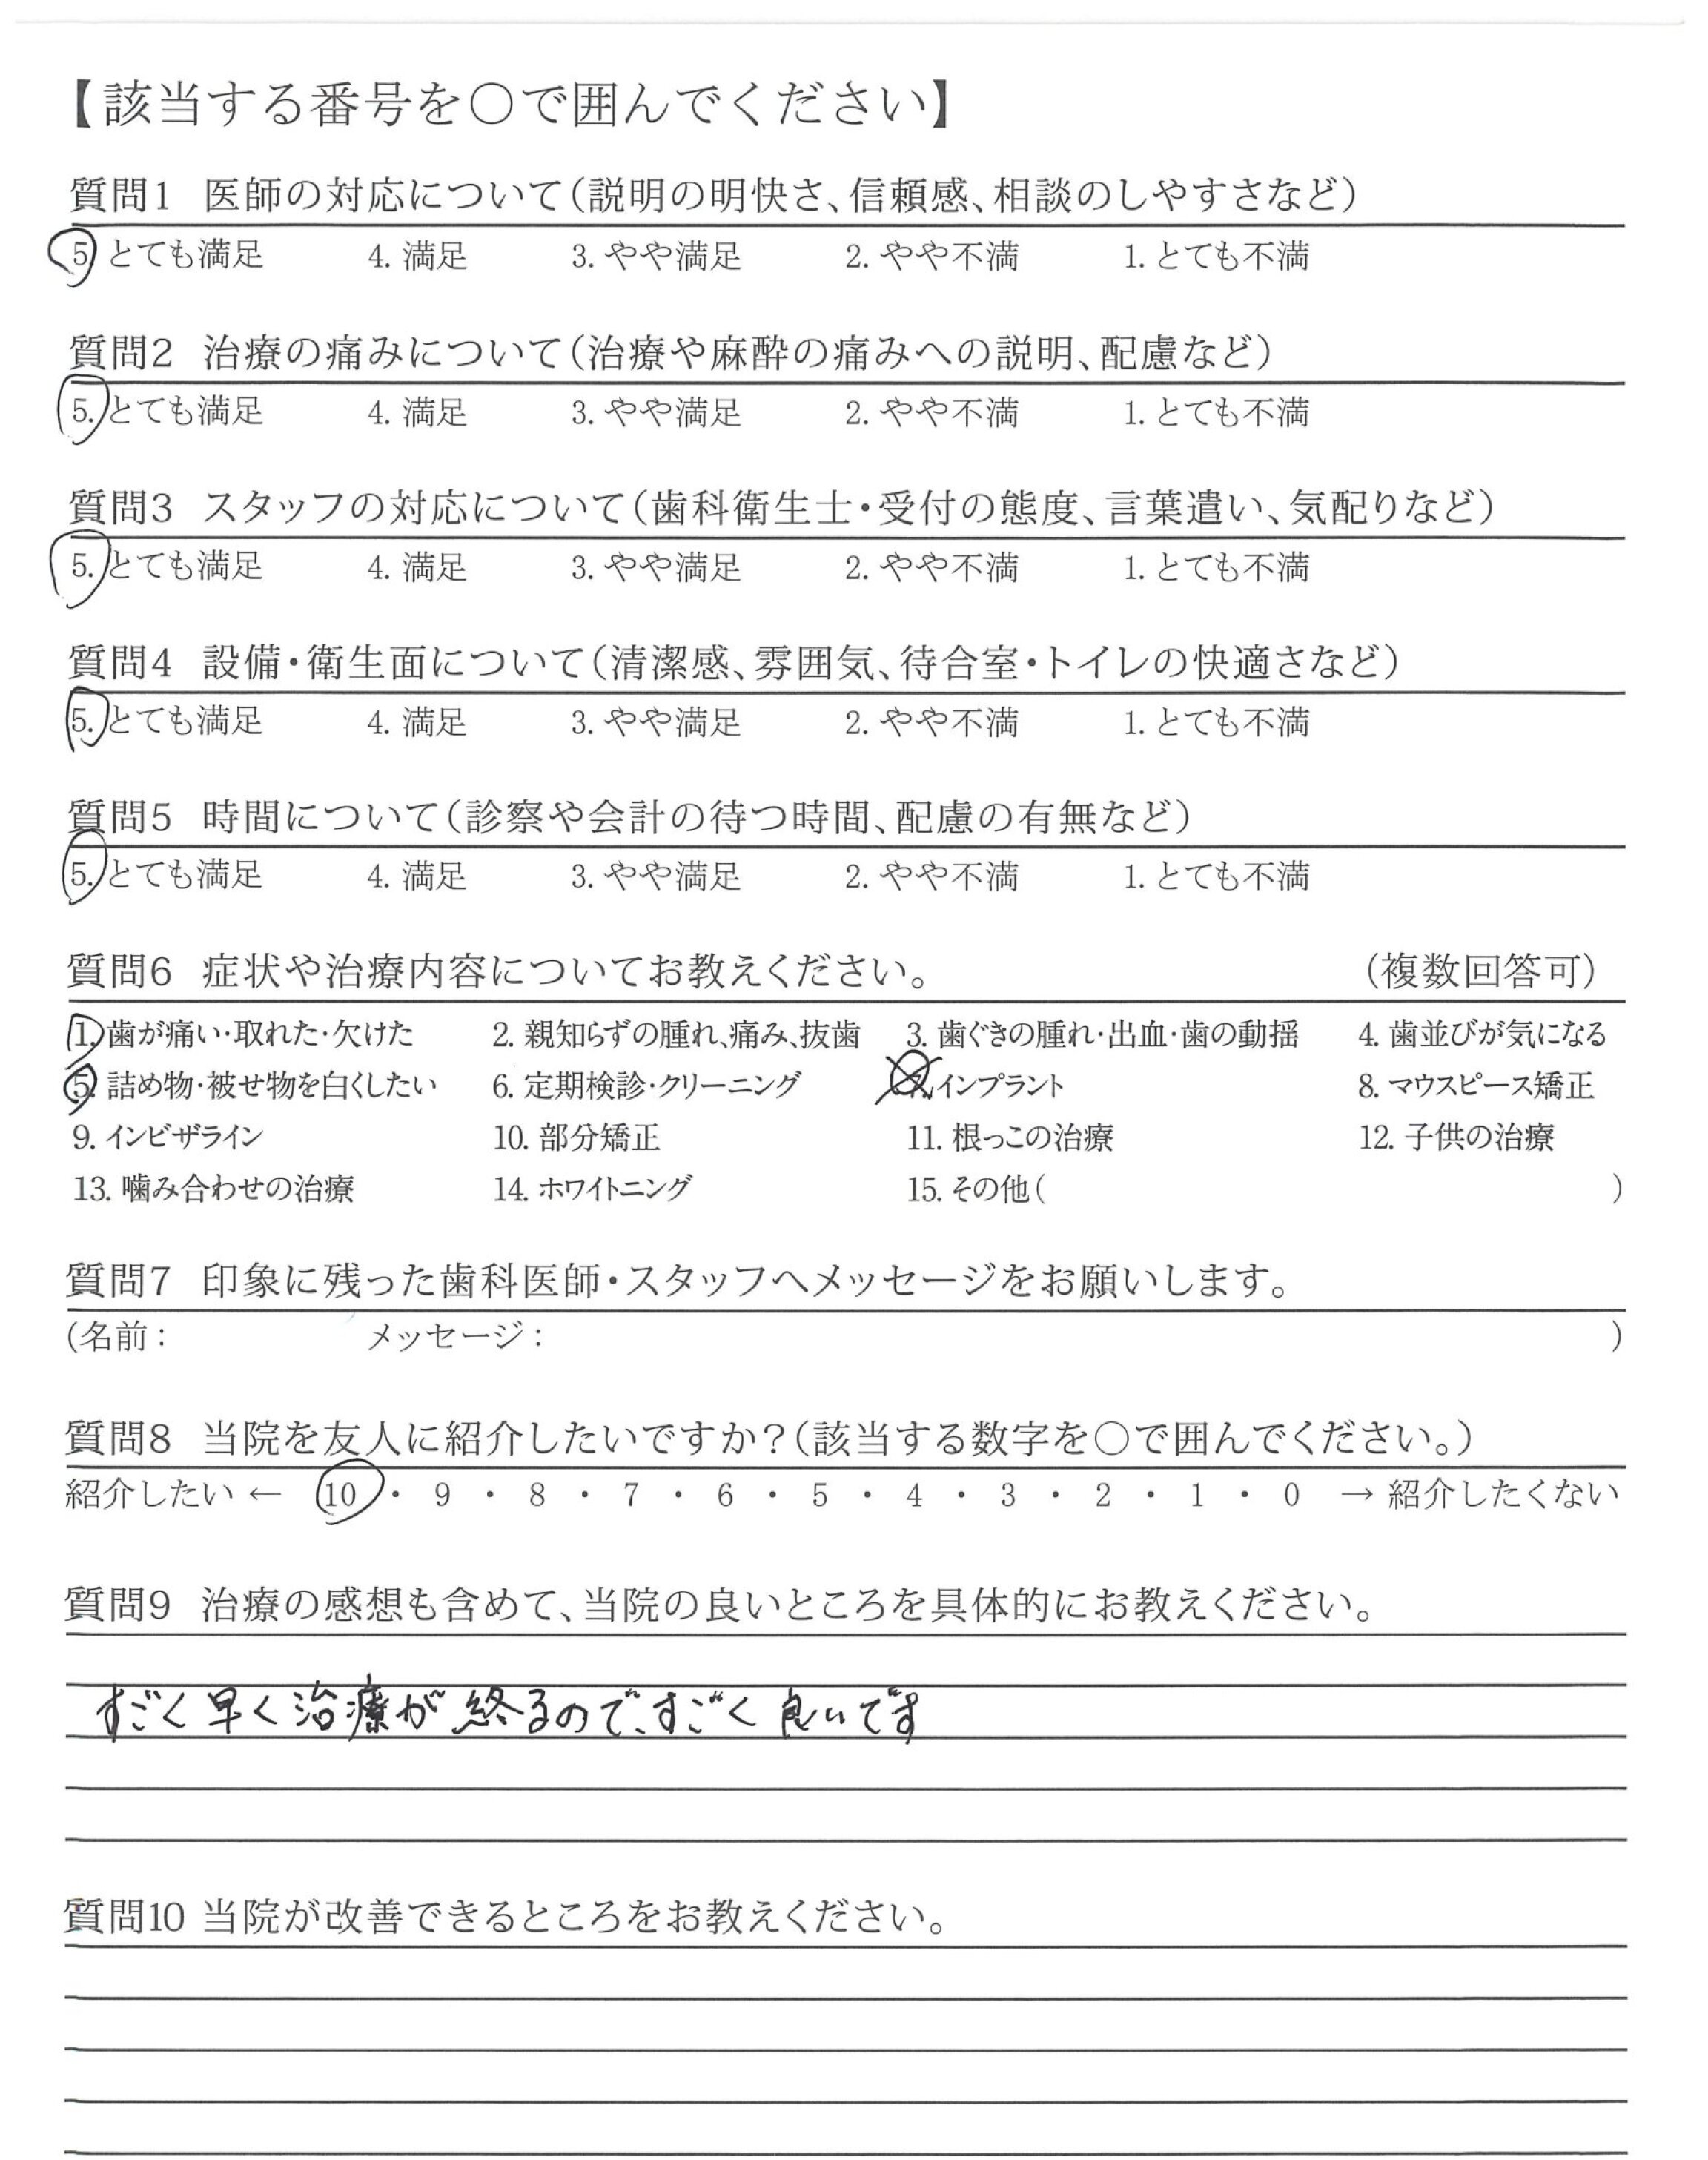 【該当する番号を〇で囲んでください】
質問1 医師の対応について（説明の明快さ、信頼感、相談のしやすさなど）
5. とても満足 4. 満足 3. やや満足 2. やや不満 1. とても不満
質問2 治療の痛みについて（治療や麻酔の痛みへの説明、配慮など）
5. とても満足 4. 満足 3. やや満足 2. やや不満 1. とても不満
質問3 スタッフの対応について（歯科衛生士・受付の態度、言葉遣い、気配りなど）
5. とても満足 4. 満足 3. やや満足 2. やや不満 1. とても不満
質問4 設備・衛生面について（清潔感、雰囲気、待合室・トイレの快適さなど）
5. とても満足 4. 満足 3. やや満足 2. やや不満 1. とても不満
質問5 時間について（診察や会計の待つ時間、配慮の有無など）
5. とても満足 4. 満足 3. やや満足 2. やや不満 1. とても不満
質問6 症状や治療内容についてお教えください。 （複数回答可）
1. 歯が痛い・取れた・欠けた 2. 親知らずの腫れ、痛み、抜歯 3. 歯ぐきの腫れ・出血・歯の動揺 4. 歯並びが気になる
5. 詰め物・被せ物を白くしたい 6. 定期検診・クリーニング 7. インプラント 8. マウスピース矯正
9. インビザライン 10. 部分矯正 11. 根っこの治療 12. 子供の治療
13. 噛み合わせの治療 14. ホワイトニング 15. その他（ ）
質問7 印象に残った歯科医師・スタッフへメッセージをお願いします。
（名前： メッセージ： ）
質問8 当院を友人に紹介したいですか？（該当する数字を〇で囲んでください。）
紹介したい ← 10 ・ 9 ・ 8 ・ 7 ・ 6 ・ 5 ・ 4 ・ 3 ・ 2 ・ 1 ・ 0 → 紹介したくない
質問9 治療の感想も含めて、当院の良いところを具体的にお教えください。
すごく早く治療が終るので、すごく良いです
質問10 当院が改善できるところをお教えください。